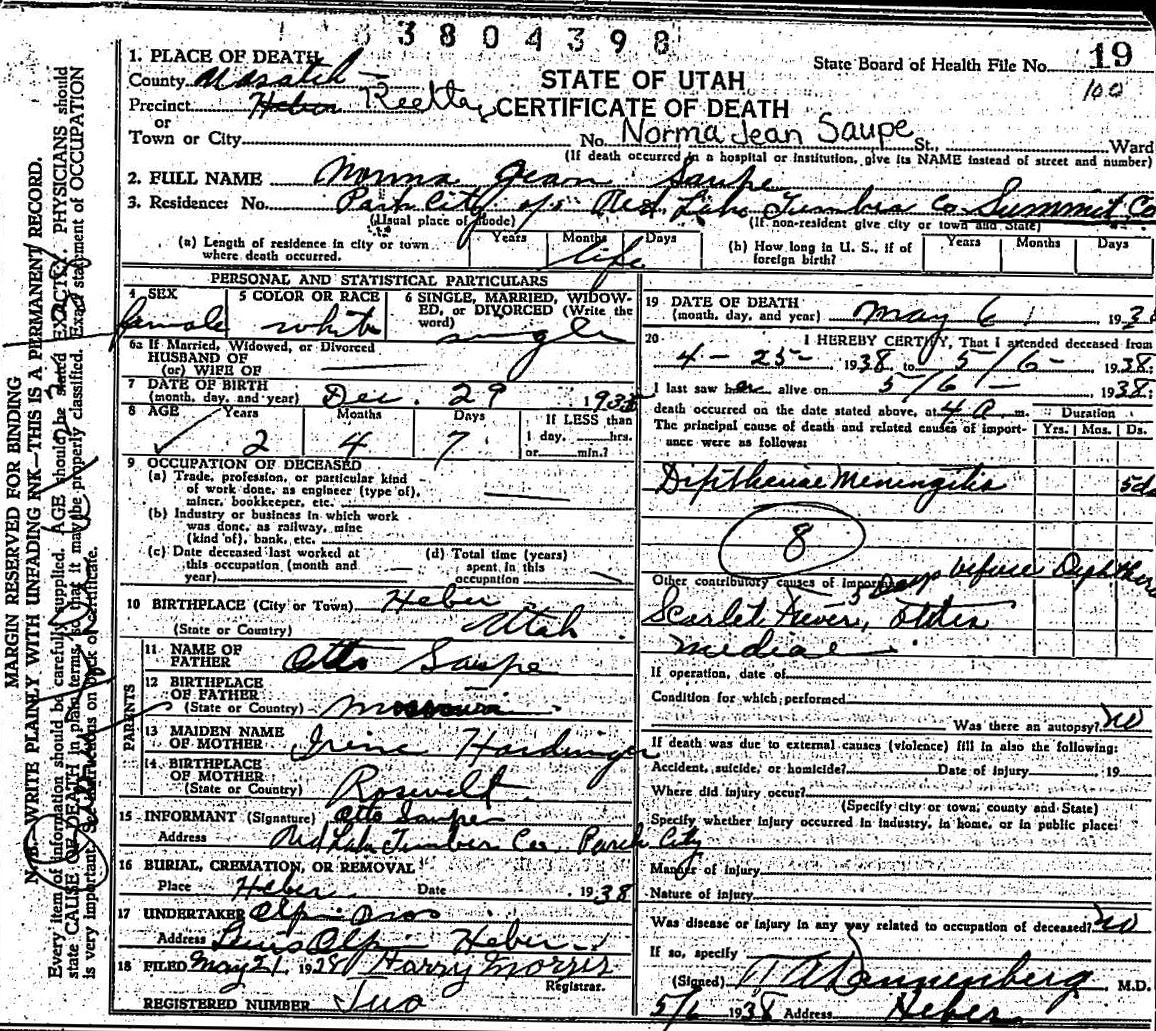 3804398
1. PLACE OF DEATH
State Board of Health File No. 19
County Wasatch
STATE OF UTAH
100
Precinct Heber
CERTIFICATE OF DEATH
or
Town or City
No. Norma Jean Saupe St., Ward
(If death occurred in a hospital or institution, give its NAME instead of street and number)
2. FULL NAME Norma Jean Saupe
3. Residence: No. Park City Timber Co Summit Co
(Usual place of abode) (If non-resident give city or town and State)
(a) Length of residence in city or town where death occurred. Years Months Days life
(b) How long in U. S., if of foreign birth? Years Months Days
PERSONAL AND STATISTICAL PARTICULARS
4 SEX female
5 COLOR OR RACE white
6 SINGLE, MARRIED, WIDOWED, or DIVORCED (Write the word) single
6a If Married, Widowed, or Divorced
HUSBAND OF
(or) WIFE OF
7 DATE OF BIRTH
(month, day, and year) Dec. 29 1935
8 AGE Years Months Days If LESS than
2 4 7 1 day, hrs.
or min.?
9 OCCUPATION OF DECEASED
(a) Trade, profession, or particular kind
of work done, as engineer (type of),
miner, bookkeeper, etc.
(b) Industry or business in which work
was done, as railway, mine
(kind of), bank, etc.
(c) Date deceased last worked at
this occupation (month and
year)
(d) Total time (years)
spent in this
occupation
10 BIRTHPLACE (City or Town) Heber
(State or Country) Utah
PARENTS
11 NAME OF
FATHER Otto Saupe
12 BIRTHPLACE
OF FATHER
(State or Country) Missouri
13 MAIDEN NAME
OF MOTHER Irene Hardinger
14 BIRTHPLACE
OF MOTHER
(State or Country) Rosevelt
15 INFORMANT (Signature) Otto Saupe
Address Timber Co. Park City
16 BURIAL, CREMATION, OR REMOVAL
Place Heber Date 1938
17 UNDERTAKER Olpin Bros
Address Heber
18 FILED May 21 1938 Harry Morris
Registrar.
REGISTERED NUMBER Two
19 DATE OF DEATH
(month, day, and year) May 6 1938
20 I HEREBY CERTIFY, That I attended deceased from
4 - 25 - 1938, to 5/6 - 1938;
I last saw her alive on 5/6 - 1938;
death occurred on the date stated above, at 4 A m. Duration
The principal cause of death and related causes of importance were as follows: Yrs. Mos. Ds.
Diptheriae Meningitis 5 ds
8
Other contributory causes of importance
5 Days before Diphtheria
Scarlet Fever, Otitis
Mediae
If operation, date of
Condition for which performed
Was there an autopsy? no
If death was due to external causes (violence) fill in also the following:
Accident, suicide, or homicide? Date of injury 19
Where did injury occur?
(Specify city or town, county and State)
Specify whether injury occurred in industry, in home, or in public place:
Manner of injury
Nature of injury
Was disease or injury in any way related to occupation of deceased? no
If so, specify
(Signed) Dannenberg M.D.
5/6 1938 Address Heber
MARGIN RESERVED FOR BINDING
N. B. WRITE PLAINLY WITH UNFADING INK—THIS IS A PERMANENT RECORD.
Every item of information should be carefully supplied. AGE should be stated EXACTLY. PHYSICIANS should
state CAUSE OF DEATH in plain terms, so that it may be properly classified. Exact statement of OCCUPATION
is very important. See instructions on back of certificate.